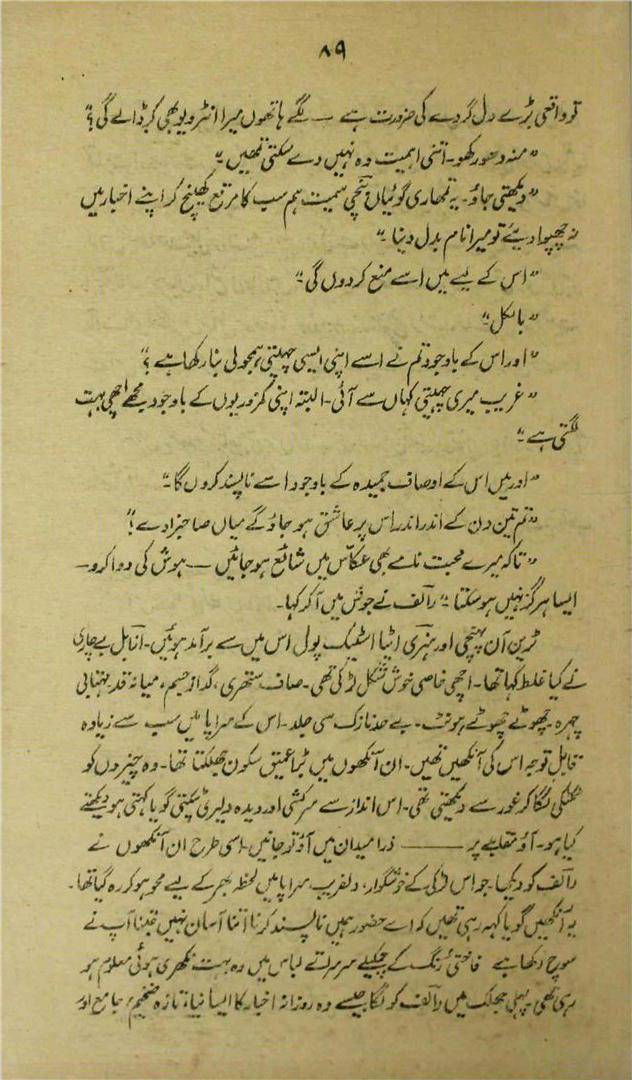 ۸۹
تو واقعی بڑے دل گردے کی ضرورت ہے — لگے ہاتھوں میرا انٹرویو بھی کر ڈالے گی؟"
"منہ دھو رکھو۔ اتنی اہمیت وہ نہیں دے سکتی تمھیں۔"
"دیکھتی جاؤ۔ یہ تمھاری گوئیاں چچی سمیت ہم سب کا مرقع کھینچ کر اپنے اخبار میں
نہ چھپوا دیئے تو میرا نام بدل دینا۔"
"اس کے لیے میں اسے منع کر دوں گی۔"
"بالکل۔"
"اور اس کے باوجود تم نے اسے اپنی ایسی چہیتی ہمجولی بنا رکھا ہے؟"
"غریب میری چہیتی کہاں سے آئی۔ البتہ اپنی کمزوریوں کے باوجود مجھے اچھی بہت
لگتی ہے۔"
"اور میں اس کے اوصاف حمیدہ کے باوجود اسے ناپسند کروں گا۔"
"تم تین دن کے اندر اندر اس پر عاشق ہو جاؤ گے میاں صاحبزادے!"
"تاکہ میرے محبت نامے بھی عکاس میں شائع ہو جائیں — ہوش کی دوا کرو —
ایسا ہرگز نہیں ہو سکتا۔" رالف نے جوش میں آ کر کہا۔
ٹرین آن پہنچی اور ہنری اٹیا اسٹیک پول اس میں سے برآمد ہوئیں۔ ازابل بے چاری
نے کیا غلط کہا تھا۔ اچھی خاصی خوش شکل لڑکی تھی۔ صاف ستھری، گداز جسم، میانہ قد۔ بیضاوی
چہرہ۔ چھوٹے چھوٹے ہونٹ۔ بے حد نازک سی جلد۔ اس کے سراپا میں سب سے زیادہ
قابل توجہ اس کی آنکھیں تھیں۔ ان آنکھوں میں بڑا عمیق سکون جھلکتا تھا۔ وہ چیزوں کو
ٹکٹکی لگا کر غور سے دیکھتی تھی۔ اس انداز سے سرکشی اور دیدہ دلیری ٹپکتی گویا کہتی ہو دیکھتے
کیا ہو۔ آؤ مقابلے پر —— ذرا میدان میں آؤ تو جانیں۔ اسی طرح ان آنکھوں نے
رالف کو دیکھا۔ جو اس لڑکی کے خوشگوار، دلفریب سراپا میں لحظہ بھر کے لیے محو ہو کر رہ گیا تھا۔
یہ آنکھیں گویا کہہ رہی تھیں کہ اے حضور ہمیں ناپسند کرنا اتنا آسان نہیں جتنا آپ نے
سوچ رکھا ہے فاختئی رنگ کے چمکیلے سرسراتے لباس میں وہ بہت نکھری ہوئی معلوم ہو
رہی تھی۔ پہلی جھلک میں رالف کو لگا جیسے وہ روزانہ اخبار کا ایسا نیا، تازہ ضخیم، جامع اور